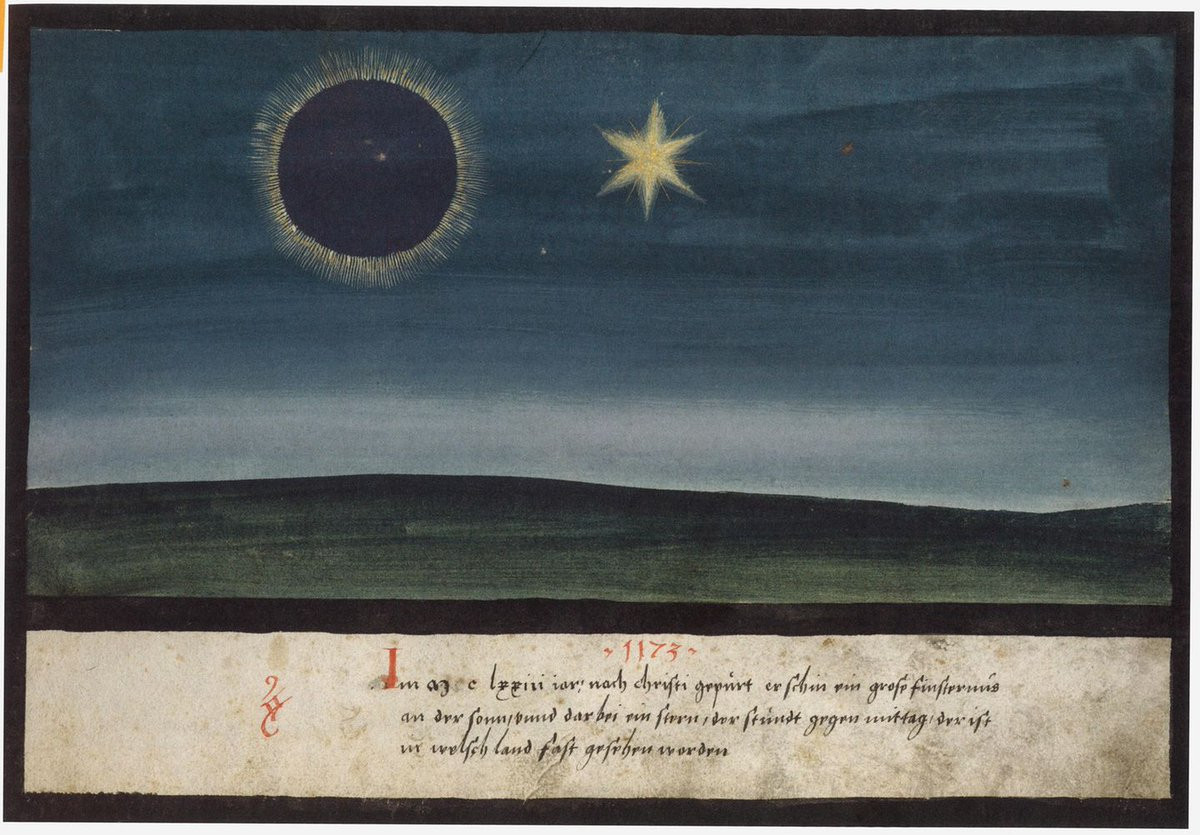 · 1173 ·
Im M c lxxiii iar, nach christi gepürt erschin ein grose finsternüs
an der sonn, vnnd darbei ein stern, der stündt gegen mittag, der ist
in welsch land fast gesehen worden